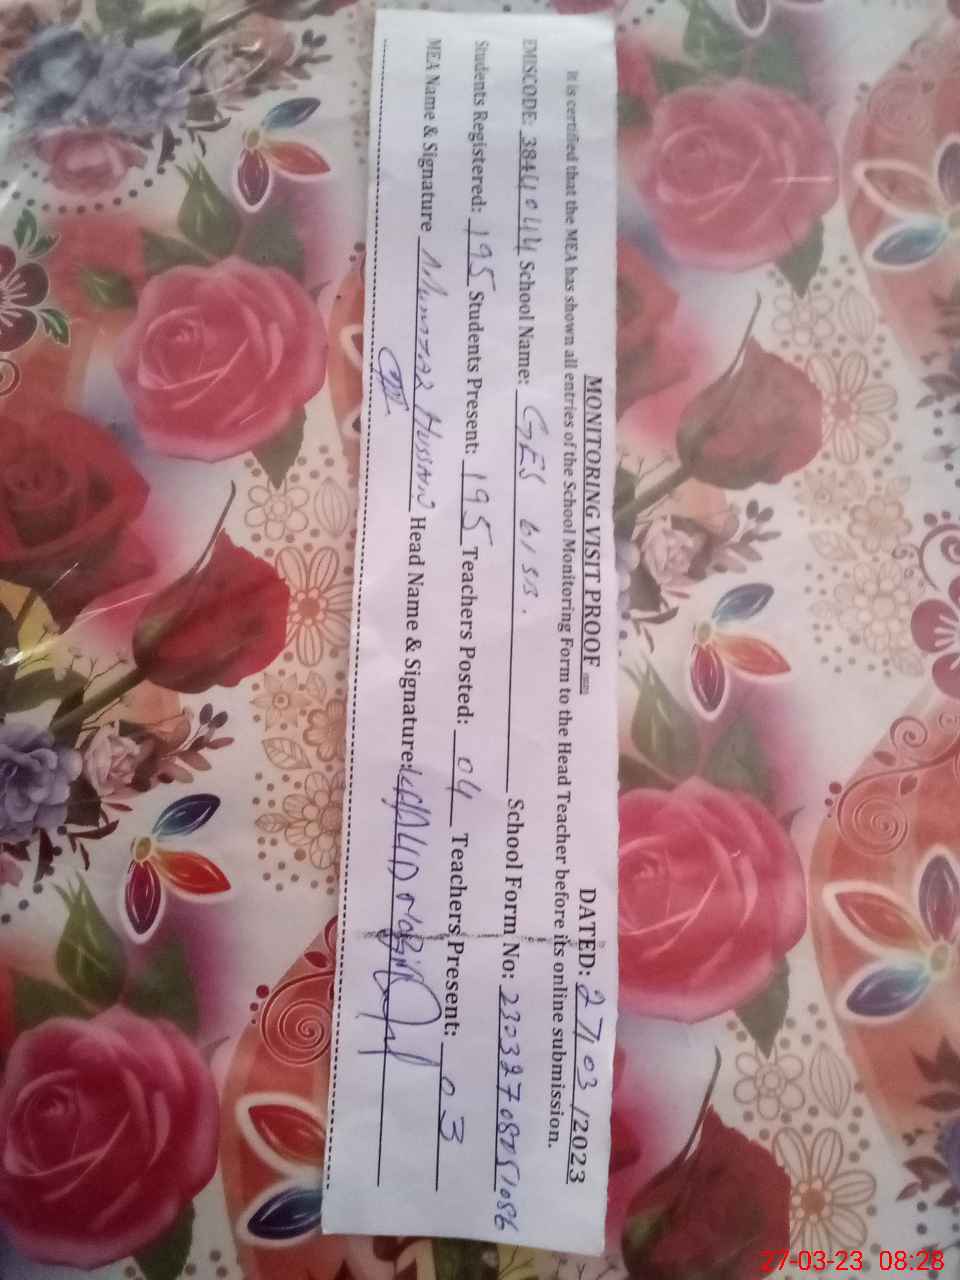 MONITORING VISIT PROOF DATED: 27/03/2023
It is certified that the MEA has shown all entries of the School Monitoring Form to the Head Teacher before its online submission.
EMISCODE: 38441044 School Name: GES School Form No:
Students Registered: 195 Students Present: 195 Teachers Posted: 04 Teachers Present: 03
MEA Name & Signature Hussain Head Name & Signature: KHALID
27-03-23 08:28